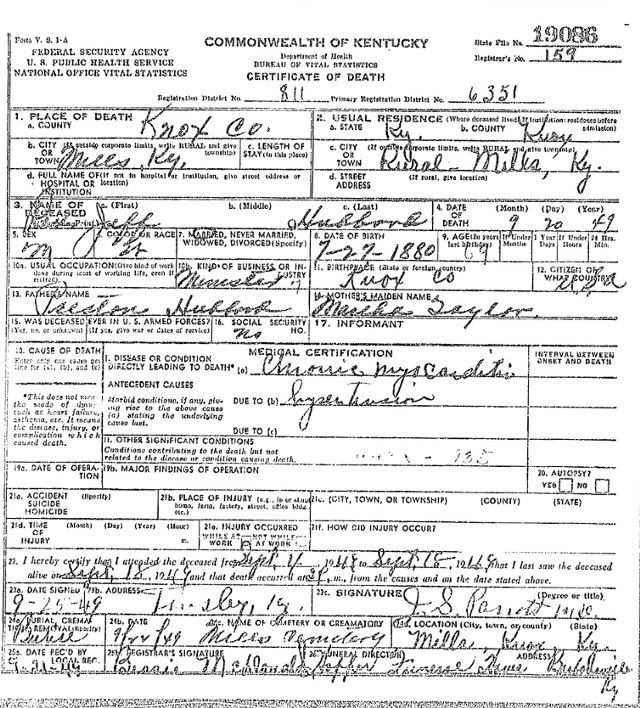 Form V. S. 1-A
FEDERAL SECURITY AGENCY
U. S. PUBLIC HEALTH SERVICE
NATIONAL OFFICE VITAL STATISTICS
COMMONWEALTH OF KENTUCKY
Department of Health
BUREAU OF VITAL STATISTICS
CERTIFICATE OF DEATH
State File No. 19086
Registrar's No. 159
Registration District No. 811 Primary Registration District No. 6351
1. PLACE OF DEATH
a. COUNTY Knox Co.
2. USUAL RESIDENCE (Where deceased lived. If institution: residence before admission)
a. STATE Ky. b. COUNTY Knox
b. CITY (If outside corporate limits, write RURAL and give township) OR TOWN Mills, Ky.
c. LENGTH OF STAY (in this place)
c. CITY (If outside corporate limits, write RURAL and give township) OR TOWN Rural - Mills, Ky.
d. FULL NAME OF (If not in hospital or institution, give street address or location) HOSPITAL OR INSTITUTION
d. STREET ADDRESS (If rural, give location)
3. NAME OF DECEASED a. (First) b. (Middle) c. (Last)
Jeff Hubbard
4. DATE OF DEATH (Month) (Day) (Year)
9 20 49
5. SEX M
6. COLOR OR RACE
7. MARRIED, NEVER MARRIED, WIDOWED, DIVORCED (Specify)
8. DATE OF BIRTH 7-27-1880
9. AGE (In years last birthday) 69 If Under 1 Year Months Days If Under 24 Hrs. Hours Min.
10a. USUAL OCCUPATION (Give kind of work done during most of working life, even if retired)
10b. KIND OF BUSINESS OR INDUSTRY
11. BIRTHPLACE (State or foreign country) Knox Co
12. CITIZEN OF WHAT COUNTRY?
13. FATHER'S NAME Preston Hubbard
14. MOTHER'S MAIDEN NAME Martha Taylor
15. WAS DECEASED EVER IN U. S. ARMED FORCES? (Yes, no, or unknown) (If yes, give war or dates of service)
16. SOCIAL SECURITY NO. No
17. INFORMANT
18. CAUSE OF DEATH
Enter only one cause per line for (a), (b), and (c)
*This does not mean the mode of dying, such as heart failure, asthenia, etc. It means the disease, injury, or complication which caused death.
MEDICAL CERTIFICATION
INTERVAL BETWEEN ONSET AND DEATH
I. DISEASE OR CONDITION DIRECTLY LEADING TO DEATH* (a) Chronic Myocarditis
ANTECEDENT CAUSES
Morbid conditions, if any, giving rise to the above cause (a) stating the underlying cause last.
DUE TO (b) hypertension
DUE TO (c)
II. OTHER SIGNIFICANT CONDITIONS
Conditions contributing to the death but not related to the disease or condition causing death.
19a. DATE OF OPERATION
19b. MAJOR FINDINGS OF OPERATION
20. AUTOPSY? YES NO
21a. ACCIDENT SUICIDE HOMICIDE (Specify)
21b. PLACE OF INJURY (e.g., in or about home, farm, factory, street, office bldg., etc.)
21c. (CITY, TOWN, OR TOWNSHIP) (COUNTY) (STATE)
21d. TIME OF INJURY (Month) (Day) (Year) (Hour) m.
21e. INJURY OCCURRED WHILE AT WORK NOT WHILE AT WORK
21f. HOW DID INJURY OCCUR?
22. I hereby certify that I attended the deceased from Sept. 1949 to Sept. 15, 1949 that I last saw the deceased
alive on Sept, 15, 1949 and that death occurred at m., from the causes and on the date stated above.
23a. DATE SIGNED 9-25-49
23b. ADDRESS Tinsley, Ky.
23c. SIGNATURE (Degree or title) J. S. Parrott MD
24a. BURIAL, CREMATION, REMOVAL (Specify) Burial
24b. DATE 9/22/49
24c. NAME OF CEMETERY OR CREMATORY Mills Cemetery
24d. LOCATION (City, town, or county) (State) Mills, Knox, Ky.
25a. DATE REC'D BY LOCAL REG.
25b. REGISTRAR'S SIGNATURE Bessie
26. FUNERAL DIRECTOR ADDRESS Hopper Funeral Home Barbourville Ky